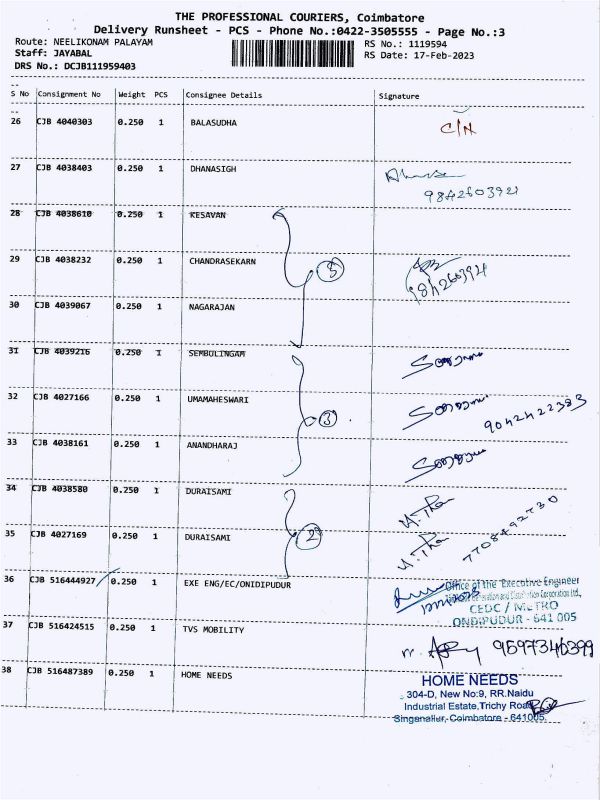 THE PROFESSIONAL COURIERS, Coimbatore
Delivery Runsheet - PCS - Phone No.:0422-3505555 - Page No.:3
Route: NEELIKONAM PALAYAM
RS No.: 1119594
Staff: JAYABAL
RS Date: 17-Feb-2023
DRS No.: DCJB111959403
S No Consignment No Weight PCS Consignee Details Signature
26 CJB 4040303 0.250 1 BALASUDHA C/N
27 CJB 4038403 0.250 1 DHANASIGH
9842603921
28 CJB 4038610 0.250 1 KESAVAN
29 CJB 4038232 0.250 1 CHANDRASEKARN
30 CJB 4039067 0.250 1 NAGARAJAN
31 CJB 4039216 0.250 1 SEMBOLINGAM
32 CJB 4027166 0.250 1 UMAMAHESWARI
3 9042422383
33 CJB 4038161 0.250 1 ANANDHARAJ
34 CJB 4038580 0.250 1 DURAISAMI
2 7708492730
35 CJB 4027169 0.250 1 DURAISAMI
36 CJB 516444927 0.250 1 EXE ENG/EC/ONIDIPUDUR
Office of the Executive Engineer
Corporation Ltd.,
CEDC / METRO
ONDIPUDUR - 641 005
37 CJB 516424515 0.250 1 TVS MOBILITY
9597346399
38 CJB 516487389 0.250 1 HOME NEEDS
HOME NEEDS
304-D, New No:9, RR.Naidu
Industrial Estate,Trichy Road
Singanallur, Coimbatore - 641005.